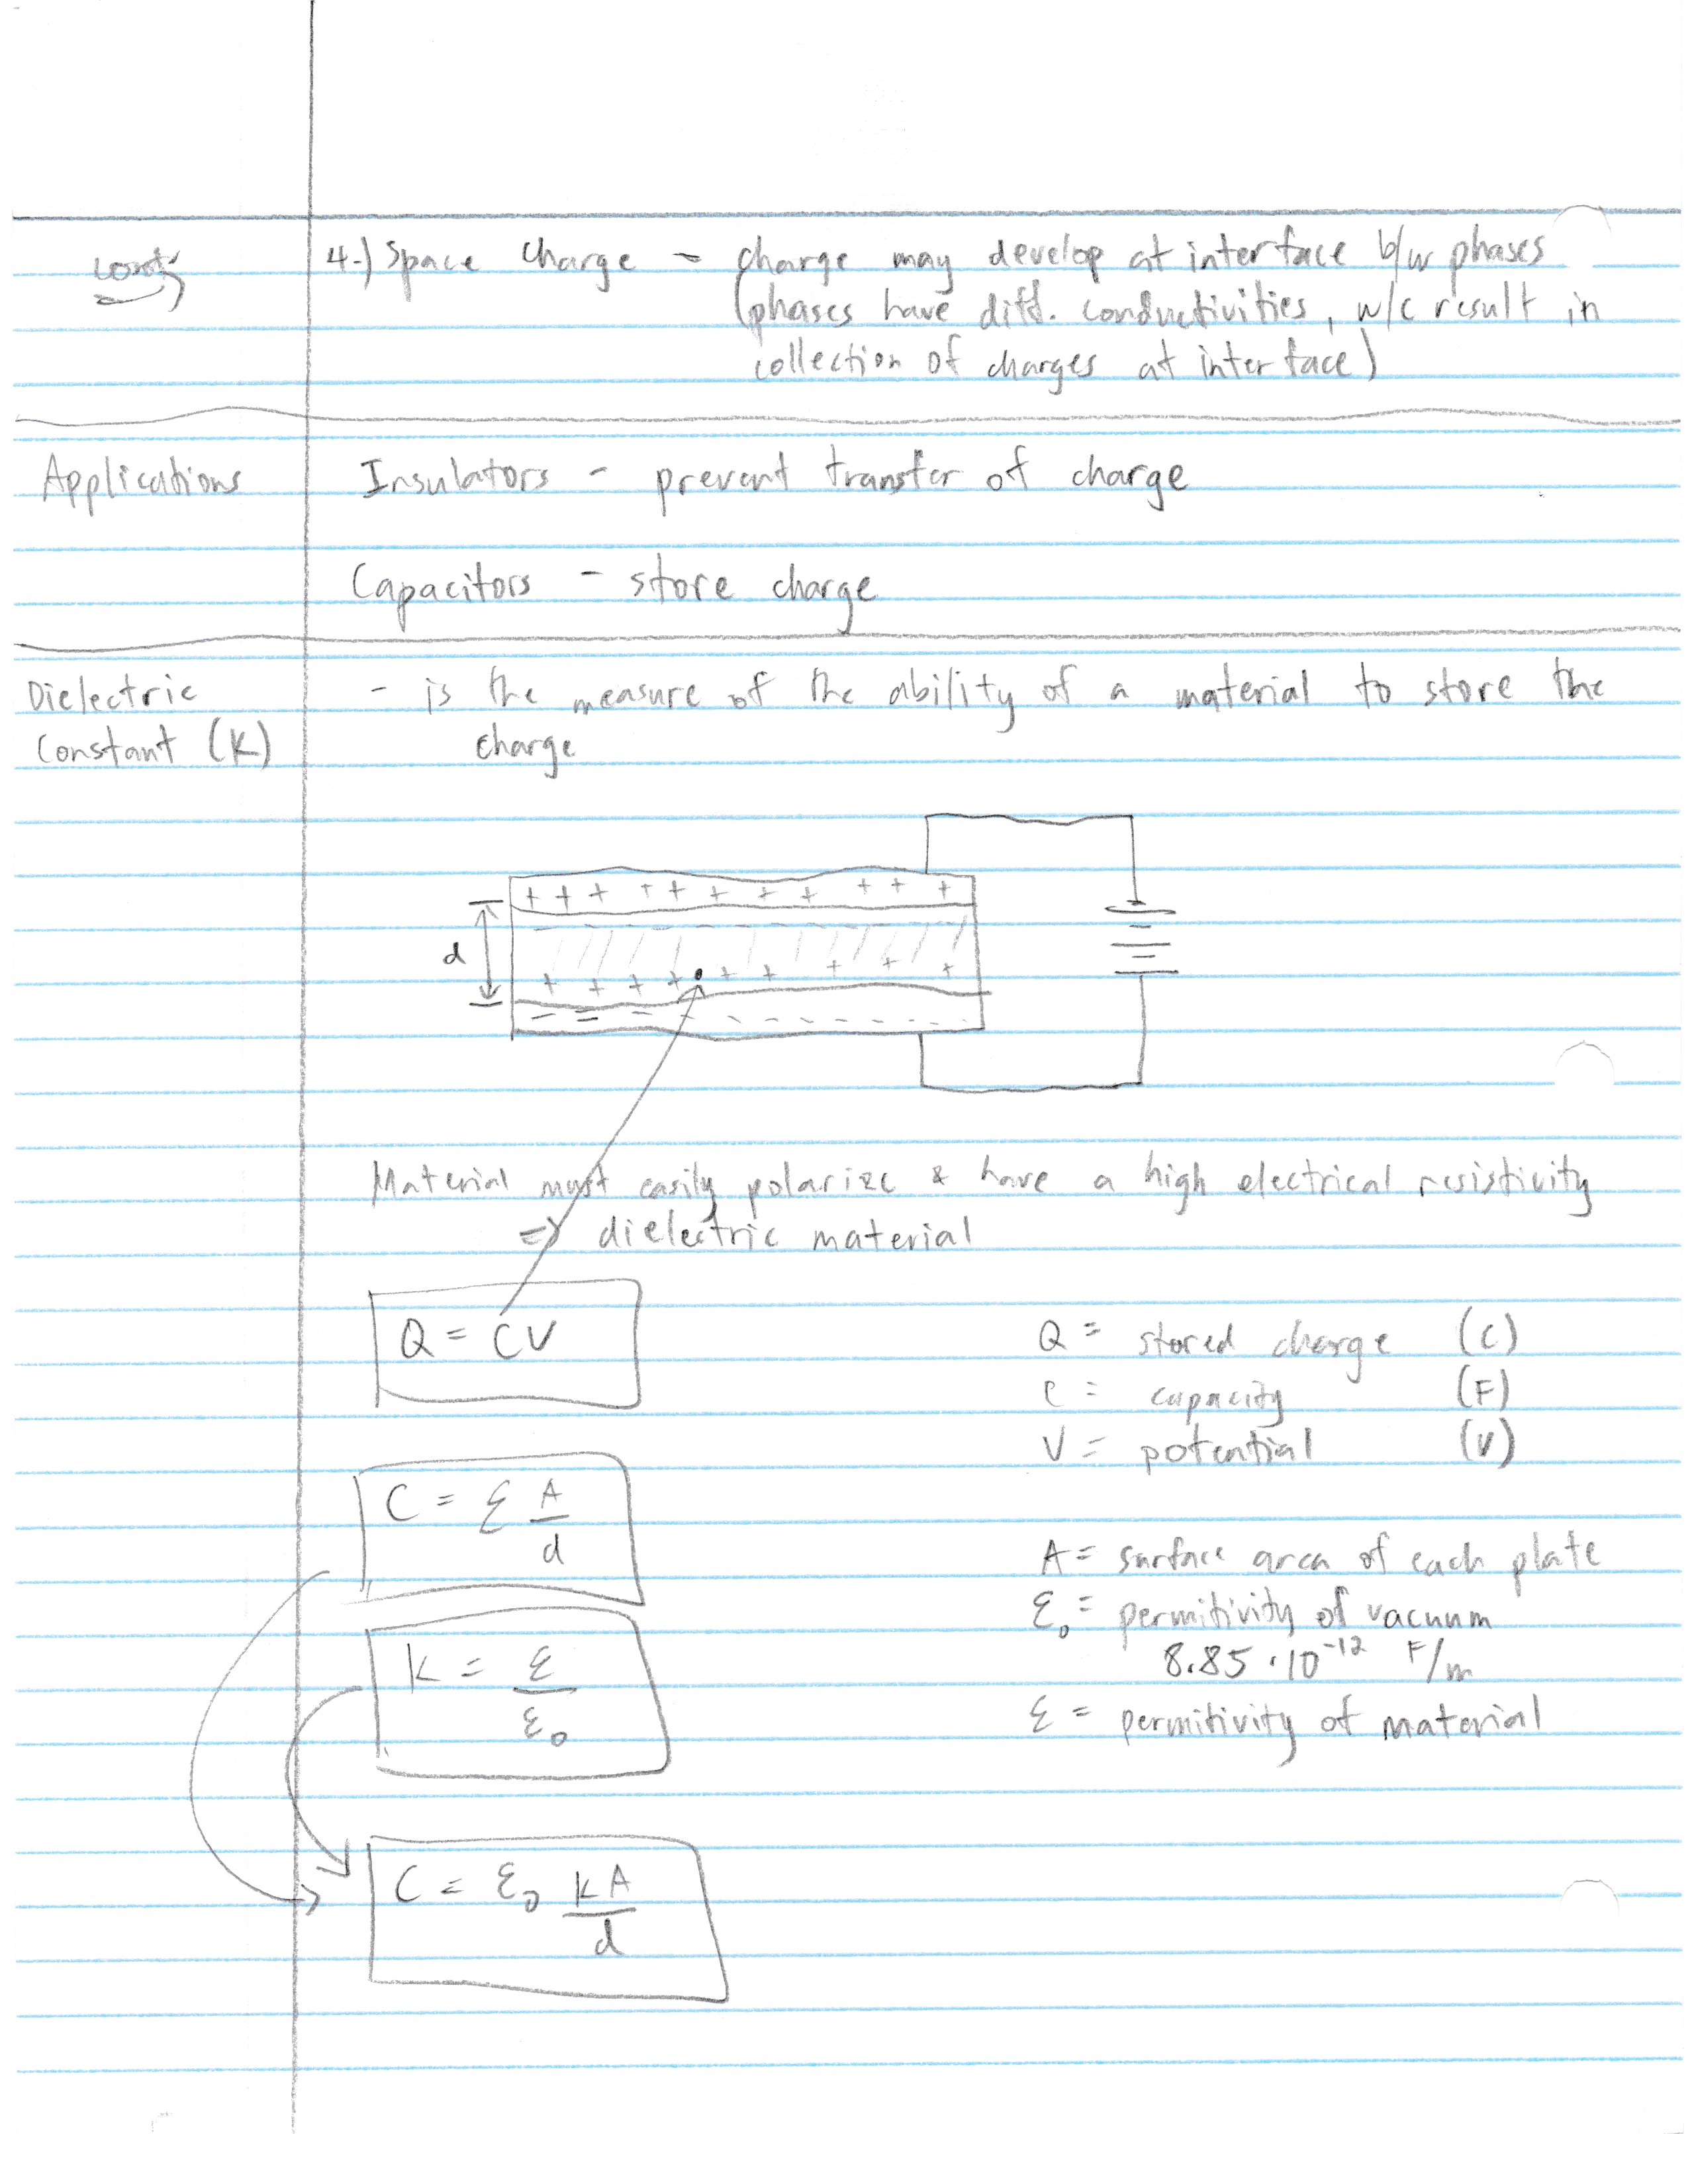 cont.
4.) Space Charge - charge may develop at interface b/w phases
(phases have diff. conductivities, w/c result in
collection of charges at interface)
Applications
Insulators - prevent transfer of charge
Capacitors - store charge
Dielectric
Constant (K)
- is the measure of the ability of a material to store the
charge
+ + + + + + + + + + +
d
+ + + + + + + + +
- - - - - - - - - - -
Material must easily polarize & have a high electrical resistivity
=> dielectric material
Q = CV
Q = stored charge (C)
C = capacity (F)
V = potential (V)
C = ε A/d
A = surface area of each plate
ε₀ = permitivity of vacuum
8.85 · 10⁻¹² F/m
K = ε/ε₀
ε = permitivity of material
C = ε₀ kA/d